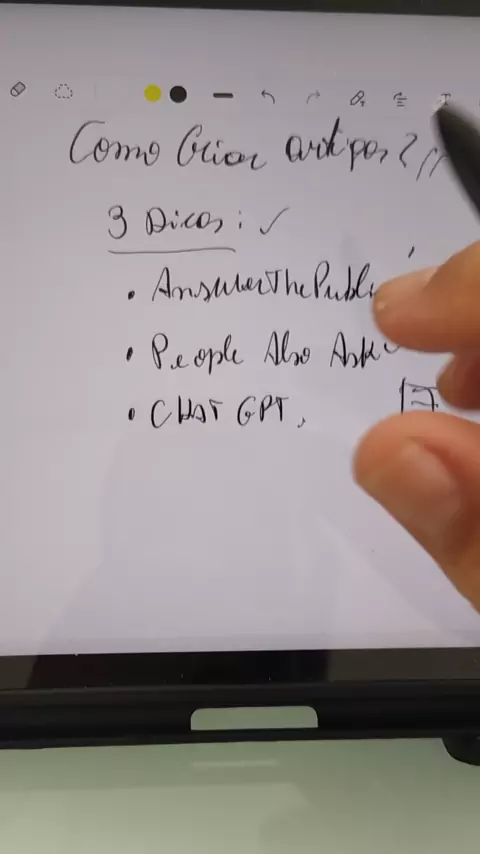 Como Criar artigos?
3 Dicas: ✓
• AnswerThePubli
• People Also Ask
• CHAT GPT,